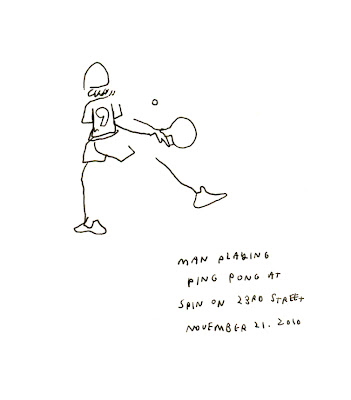 9
MAN PLAYING
PING PONG AT
SPIN ON 23RD STREET
NOVEMBER 21. 2010